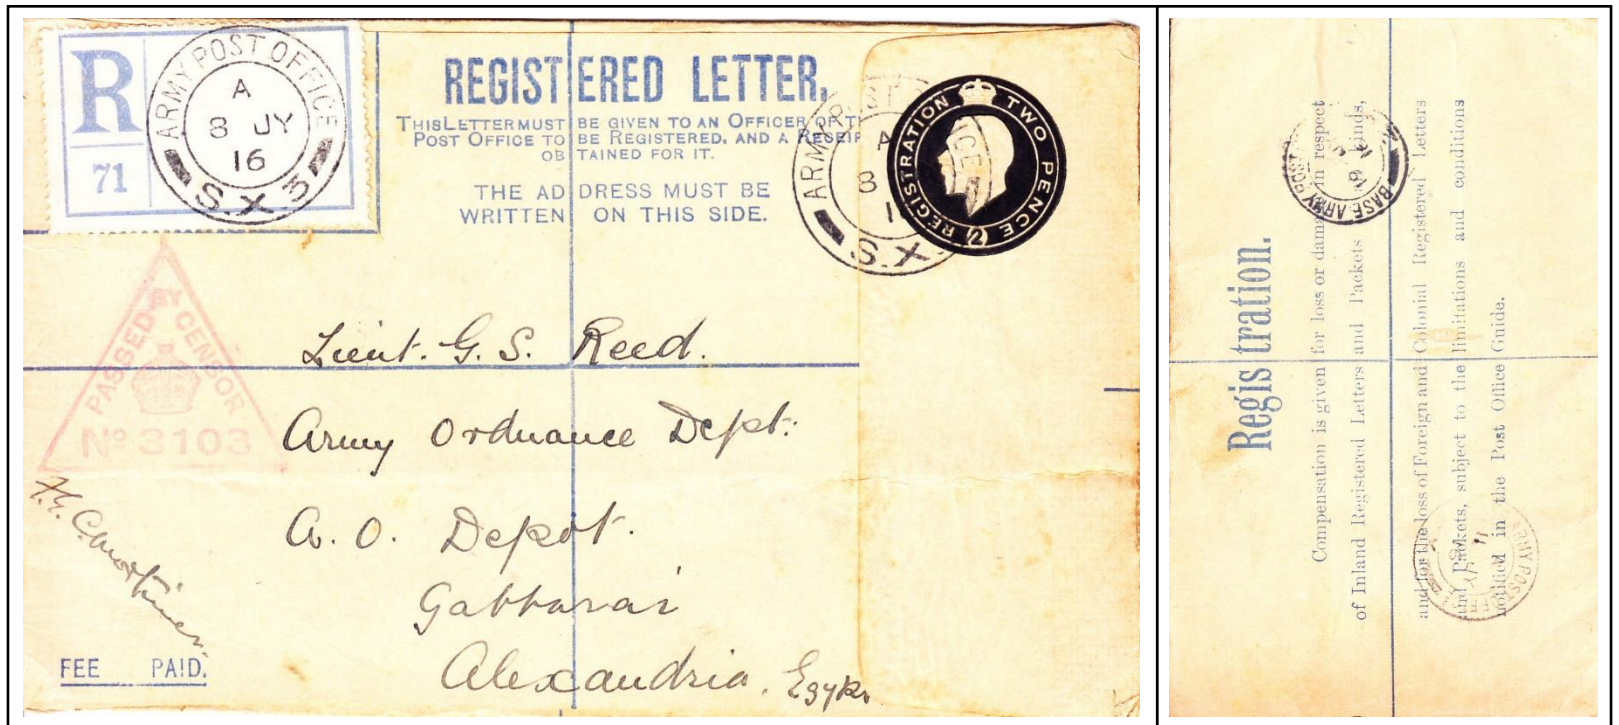 R
71
ARMY POST OFFICE
A
8 JY
16
S.X.3
REGISTERED LETTER.
THIS LETTER MUST BE GIVEN TO AN OFFICER OF TH
POST OFFICE TO BE REGISTERED, AND A RECEIP
OBTAINED FOR IT.
THE ADDRESS MUST BE
WRITTEN ON THIS SIDE.
ARMY POST
A
8
1
S.X
REGISTRATION TWO PENCE (2)
PASSED BY CENSOR
No 3103
Lieut. G. S. Reed.
Army Ordnance Dept.
A. O. Depot.
Gabbarai
Alexandria. Egypt.
FEE PAID.
Registration.
Compensation is given for loss or damage in respect
of Inland Registered Letters and Packets of all kinds,
and for the loss of Foreign and Colonial Registered Letters
and Packets, subject to the limitations and conditions
notified in the Post Office Guide.
BASE ARMY POST
ARMY POST